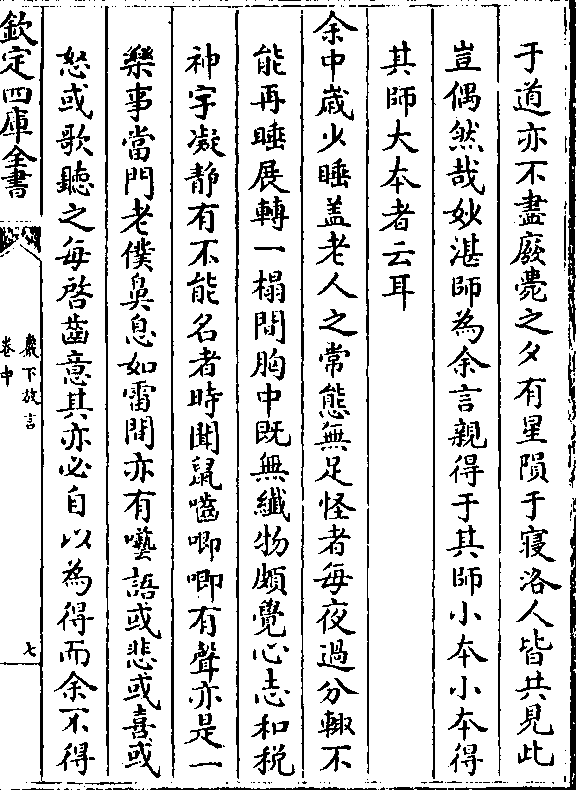 于道亦不盡廢薨之夕有星隕于寢洛人皆共見此
豈偶然哉妙湛師為余言親得于其師小本小本得
其師大本者云耳
余中嵗少睡盖老人之常態無足怪者每夜過分輙不
能再睡展轉一榻間胸中既無纎物頗覺心志和稅
神宇凝静有不能名者時聞鼠嚙唧唧有聲亦是一
樂事當門老僕鼻息如雷間亦有囈語或悲或喜或
怒或歌聽之每啓齒意其亦必自以為得而余不得
欽定四庫全書
巖下放言
卷中
七